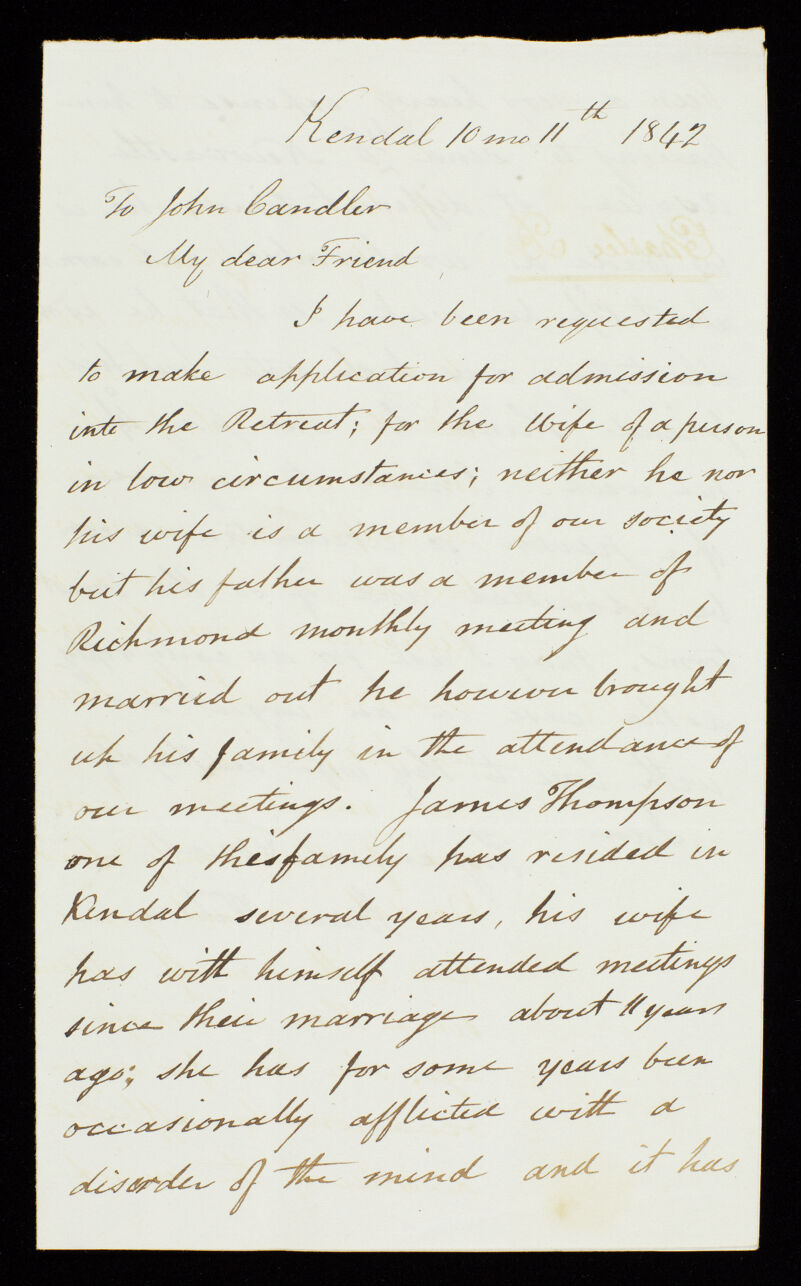 Kendal 10 mo 11th 1842
To John Candler
My dear Friend
I have been requested
to make application for admission
into the Retreat; for the Wife of a person
in low circumstances; neither he nor
his wife is a member of our society
but his father was a member of
Richmond monthly meeting and
married out he however brought
up his family in the attendance of
our meetings. James Thompson
one of this family has resided in
Kendal several years, his wife
has with himself attended meetings
since their marriage about 11 years
ago; she has for some years been
occasionally afflicted with a
disorder of the mind and it has